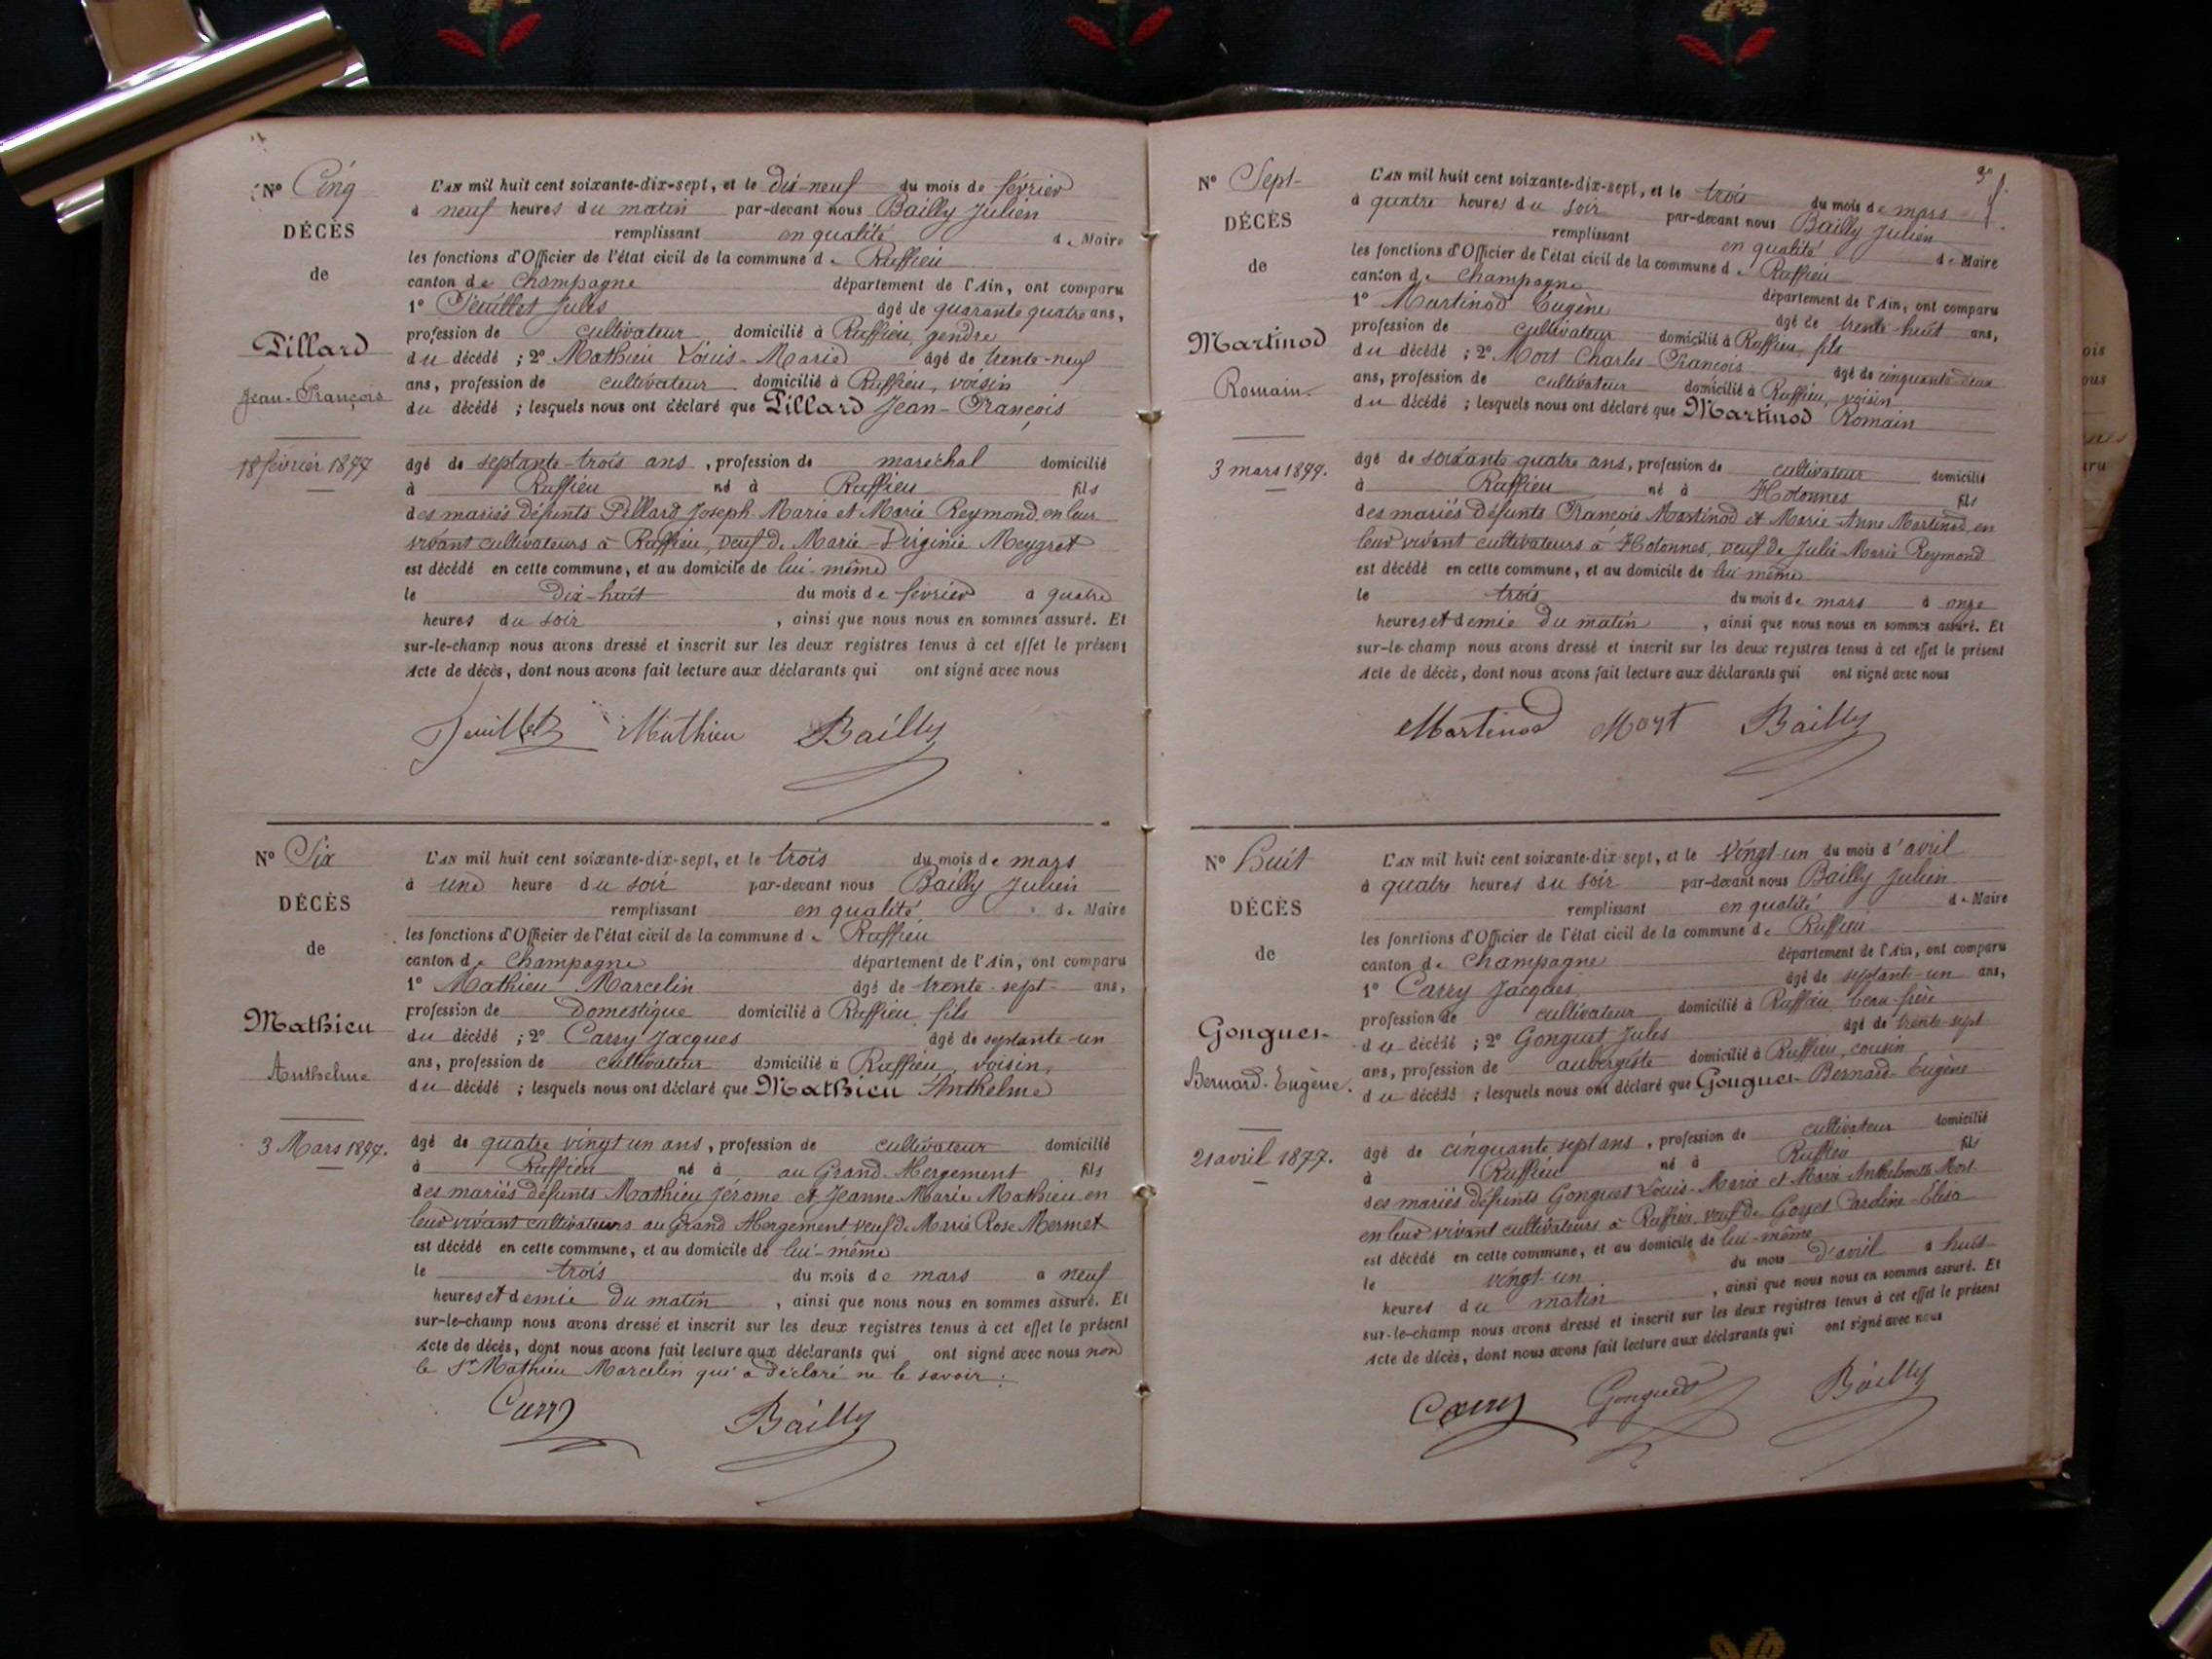 N° Cinq
DÉCÈS
de
Pillard
Jean-François
18 février 1877
L'AN mil huit cent soixante-dix-sept, et le dix-neuf du mois de février
à neuf heures du matin par-devant nous Bailly Julien
remplissant en qualité de Maire
les fonctions d'Officier de l'état civil de la commune de Ruffieu
canton de Champagne département de l'Ain, ont comparu
1° Feuillet Jules âgé de quarante quatre ans,
profession de cultivateur domicilié à Ruffieu, gendre
du décédé ; 2° Mathieu Louis-Marie âgé de trente-neuf
ans, profession de cultivateur domicilié à Ruffieu, voisin
du décédé ; lesquels nous ont déclaré que Pillard Jean-François
âgé de septante-trois ans, profession de maréchal domicilié
à Ruffieu né à Ruffieu fils
des mariés défunts Pillard Joseph-Marie et Marie Reymond, en leur
vivant cultivateurs à Ruffieu, veuf de Marie-Virginie Meygret
est décédé en cette commune, et au domicile de lui-même
le dix-huit du mois de février à quatre
heures du soir, ainsi que nous nous en sommes assuré. Et
sur-le-champ nous avons dressé et inscrit sur les deux registres tenus à cet effet le présent
Acte de décès, dont nous avons fait lecture aux déclarants qui ont signé avec nous
Feuillet Mathieu Bailly
N° Six
DÉCÈS
de
Mathieu
Anthelme
3 Mars 1877.
L'AN mil huit cent soixante-dix-sept, et le trois du mois de mars
à une heure du soir par-devant nous Bailly Julien
remplissant en qualité de Maire
les fonctions d'Officier de l'état civil de la commune de Ruffieu
canton de Champagne département de l'Ain, ont comparu
1° Mathieu Marcelin âgé de trente-sept ans,
profession de Domestique domicilié à Ruffieu, fils
du décédé ; 2° Carry Jacques âgé de septante-un
ans, profession de cultivateur domicilié à Ruffieu, voisin,
du décédé ; lesquels nous ont déclaré que Mathieu Anthelme
âgé de quatre vingt un ans, profession de cultivateur domicilié
à Ruffieu né à au Grand-Abergement fils
des mariés défunts Mathieu Jérome et Jeanne-Marie Mathieu en
leur vivant cultivateurs au Grand Abergement veuf de Marie Rose Mermet
est décédé en cette commune, et au domicile de lui-même
le trois du mois de mars à neuf
heures et demie du matin, ainsi que nous nous en sommes assuré. Et
sur-le-champ nous avons dressé et inscrit sur les deux registres tenus à cet effet le présent
Acte de décès, dont nous avons fait lecture aux déclarants qui ont signé avec nous non
le Sr Mathieu Marcelin qui a déclaré ne le savoir.
Carry Bailly
N° Sept
DÉCÈS
de
Martinod
Romain.
3 mars 1877.
L'AN mil huit cent soixante-dix-sept, et le trois du mois de mars
à quatre heures du soir par-devant nous Bailly Julien
remplissant en qualité de Maire
les fonctions d'Officier de l'état civil de la commune de Ruffieu
canton de Champagne département de l'Ain, ont comparu
1° Martinod Eugène âgé de trente-huit ans,
profession de cultivateur domicilié à Ruffieu, fils
du décédé ; 2° Mort Charles-François âgé de cinquante-deux
ans, profession de cultivateur domicilié à Ruffieu, voisin
du décédé ; lesquels nous ont déclaré que Martinod Romain
âgé de soixante quatre ans, profession de cultivateur domicilié
à Ruffieu né à Hotonnes fils
des mariés défunts François Martinod et Marie-Anne Martinod, en
leur vivant cultivateurs à Hotonnes, veuf de Julie-Marie Reymond
est décédé en cette commune, et au domicile de lui-même
le trois du mois de mars à onze
heures et demie du matin, ainsi que nous nous en sommes assuré. Et
sur-le-champ nous avons dressé et inscrit sur les deux registres tenus à cet effet le présent
Acte de décès, dont nous avons fait lecture aux déclarants qui ont signé avec nous
Martinod Mort Bailly
N° Huit
DÉCÈS
de
Gonguet
Bernard-Eugène.
21 avril 1877.
L'AN mil huit cent soixante-dix-sept, et le vingt-un du mois d'avril
à quatre heures du soir par-devant nous Bailly Julien
remplissant en qualité de Maire
les fonctions d'Officier de l'état civil de la commune de Ruffieu
canton de Champagne département de l'Ain, ont comparu
1° Carry Jacques âgé de septante-un ans,
profession de cultivateur domicilié à Ruffieu, beau-frère
du décédé ; 2° Gonguet Jules âgé de trente-sept
ans, profession de aubergiste domicilié à Ruffieu, cousin
du décédé ; lesquels nous ont déclaré que Gonguet Bernard-Eugène
âgé de cinquante sept ans, profession de cultivateur domicilié
à Ruffieu né à Ruffieu fils
des mariés défunts Gonguet Louis-Marie et Marie Anthelmette Mort
en leur vivant cultivateurs à Ruffieu, veuf de Goyet Caroline-Elisa
est décédé en cette commune, et au domicile de lui-même
le vingt-un du mois d'avril à huit
heures du matin, ainsi que nous nous en sommes assuré. Et
sur-le-champ nous avons dressé et inscrit sur les deux registres tenus à cet effet le présent
Acte de décès, dont nous avons fait lecture aux déclarants qui ont signé avec nous
Carry Gonguet Bailly